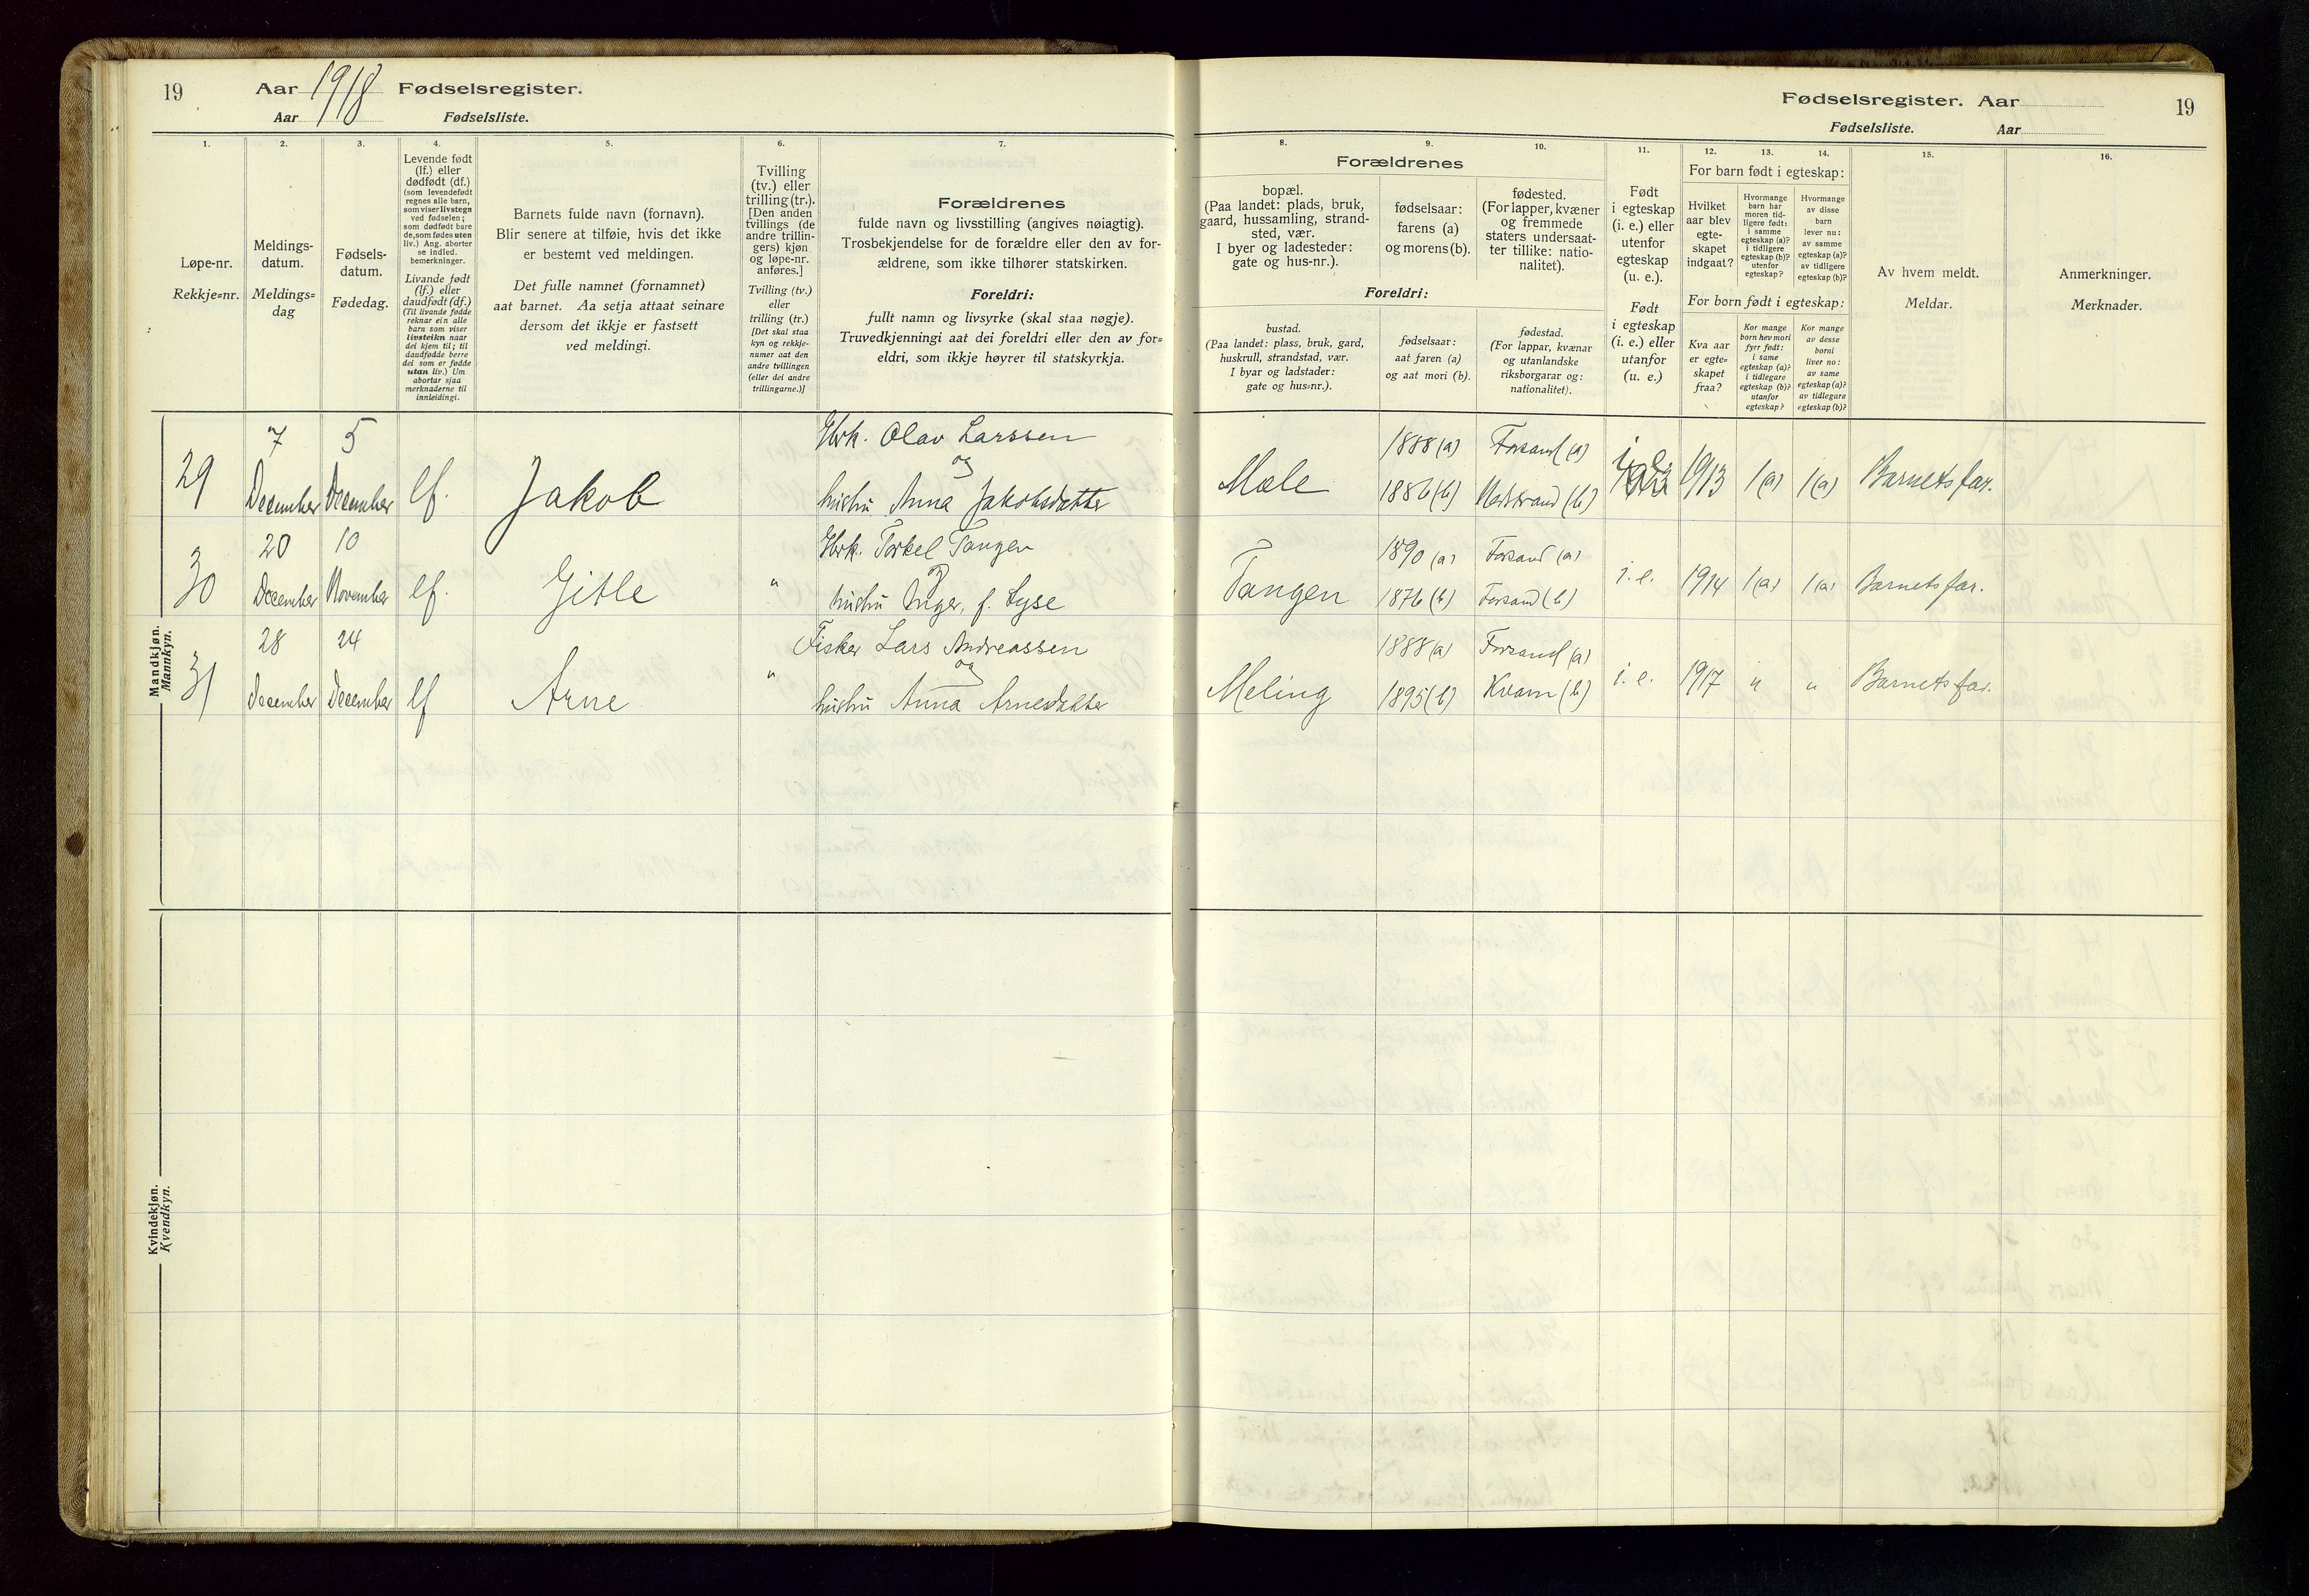 19 Aar 1918 Fødselsregister.
Aar Fødselsliste.
1. 2. 3. 4. 5. 6. 7.
Løpe-nr.
Rekkje=nr.
Meldings-
datum.
Meldings=
dag
Fødsels-
datum.
Fødedag.
Levende født
(lf.) eller
dødfødt (df.)
(som levendefødt
regnes alle barn,
som viser livstegn
ved fødselen;
som dødfødt bare
de, som fødes uten
liv.) Ang. aborter
se indled.
bemerkninger.
Livande født
(lf.) eller
daudfødt (df.)
(Til livande fødde
reknar ein alle
barn som viser
livsteikn naar
dei kjem til; til
daudfødde berre
dei som er fødde
utan liv.) Um
abortar sjaa
merknaderne til
innleidingi.
Barnets fulde navn (fornavn).
Blir senere at tilføie, hvis det ikke
er bestemt ved meldingen.
Det fulle namnet (fornamnet)
aat barnet. Aa setja attaat seinare
dersom det ikkje er fastsett
ved meldingi.
Tvilling
(tv.) eller
trilling (tr.).
[Den anden
tvillings (de
andre trillin-
gers) kjøn
og løpe-nr.
anføres.]
Tvilling (tv.)
eller
trilling (tr.)
[Det skal staa
kyn og rekkje-
numer aat den
andre tvillingen
(eller dei andre
trillingarne.)]
Forældrenes
fulde navn og livsstilling (angives nøiagtig).
Trosbekjendelse for de forældre eller den av for-
ældrene, som ikke tilhører statskirken.
Foreldri:
fullt namn og livsyrke (skal staa nøgje).
Truvedkjenningi aat dei foreldri eller den av for=
eldri, som ikkje høyrer til statskyrkja.
Mandkjøn.
Mannkyn.
29 7 December 5 December lf. Jakob
Grbr. Olav Larssen
og
hustru Anna Jakobsdatter
30 20 December 10 November lf. Gitle "
Torkel Tangen
og
hustru Inger, f. Lyse
31 28 December 24 December lf Arne "
Fisker Lars Andreassen
og
hustru Anna Arnesdatter
Kvindekjøn.
Kvendkyn.
Fødselsregister. Aar 19
Fødselsliste. Aar
8. 9. 10. 11. 12. 13. 14. 15. 16.
Forældrenes
bopæl.
(Paa landet: plads, bruk,
gaard, hussamling, strand-
sted, vær.
I byer og ladesteder:
gate og hus-nr.).
fødselsaar:
farens (a)
og morens (b).
fødested.
(For lapper, kvæner
og fremmede
staters undersaat-
ter tillike: natio-
nalitet).
Foreldri:
bustad.
(Paa landet: plass, bruk, gard,
huskrull, strandstad, vær.
I byar og ladstader:
gate og hus=nr.).
fødselsaar:
aat faren (a)
og aat mori (b).
fødestad.
(For lappar, kvænar
og utanlandske
riksborgarar og:
nationalitet).
Født
i egteskap
(i. e.) eller
utenfor
egteskap
(u. e.).
Født
i egteskap
(i. e.) eller
utanfor
(u. e.)
For barn født i egteskap:
Hvilket
aar blev
egte-
skapet
indgaat?
Hvormange
barn har
moren tid-
ligere født:
i samme
egteskap (a)?
i tidligere
egteskap (b)?
utenfor
egteskap?
Hvormange
av disse
barn
lever nu:
av samme
egteskap (a)?
av tidligere
egteskap (b)?
For born født i egteskap:
Kva aar
er egte=
skapet
fraa?
Kor mange
born hev mori
fyrr født:
i same
egteskap (a)?
i tidlegare
egteskap (b)?
utanfor
egteskap?
Kor mange
av desse
borni
liver no:
av same
egteskap (a)?
av tidlegare
egteskap (b)?
Av hvem meldt.
Meldar.
Anmerkninger.
Merknader.
Mæle 1888 (a) Forsand (a) i. e. 1913 1(a) 1(a) Barnets far.
1886 (b) Nedstrand (b)
Tangen 1890 (a) Forsand (a) i. e. 1914 1(a) 1(a) Barnets far.
1876 (b) Forsand (b)
Meling 1888 (a) Forsand (a) i. e. 1917 " " Barnets far.
1895 (b) Kvam (b)